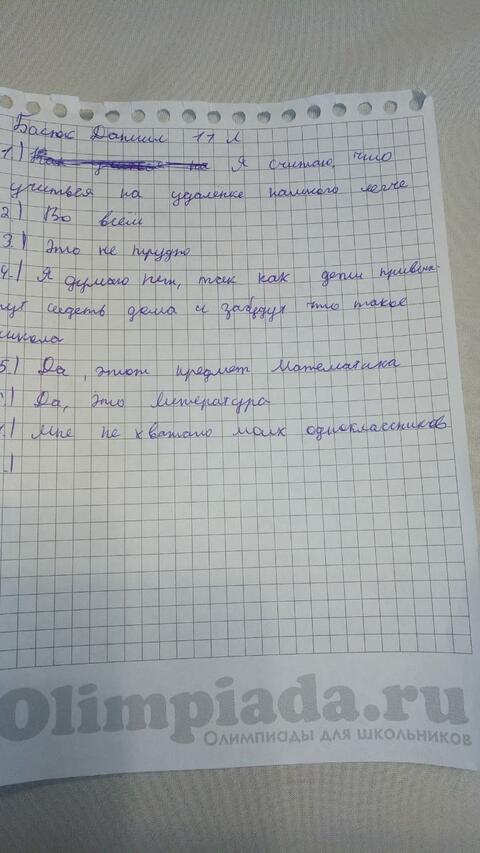 Басюк Даниил 11 Л
1.) Я считаю, что
учиться на удаленке намного легче
2.) Во всём
3.) Это не трудно
4.) Я думаю нет, так как дети привык-
нут сидеть дома и забудут что такое
школа
5.) Да, этот предмет Математика
.) Да, это литература
.) Мне не хватало моих одноклассников
.)
Olimpiada.ru
Олимпиады для школьников